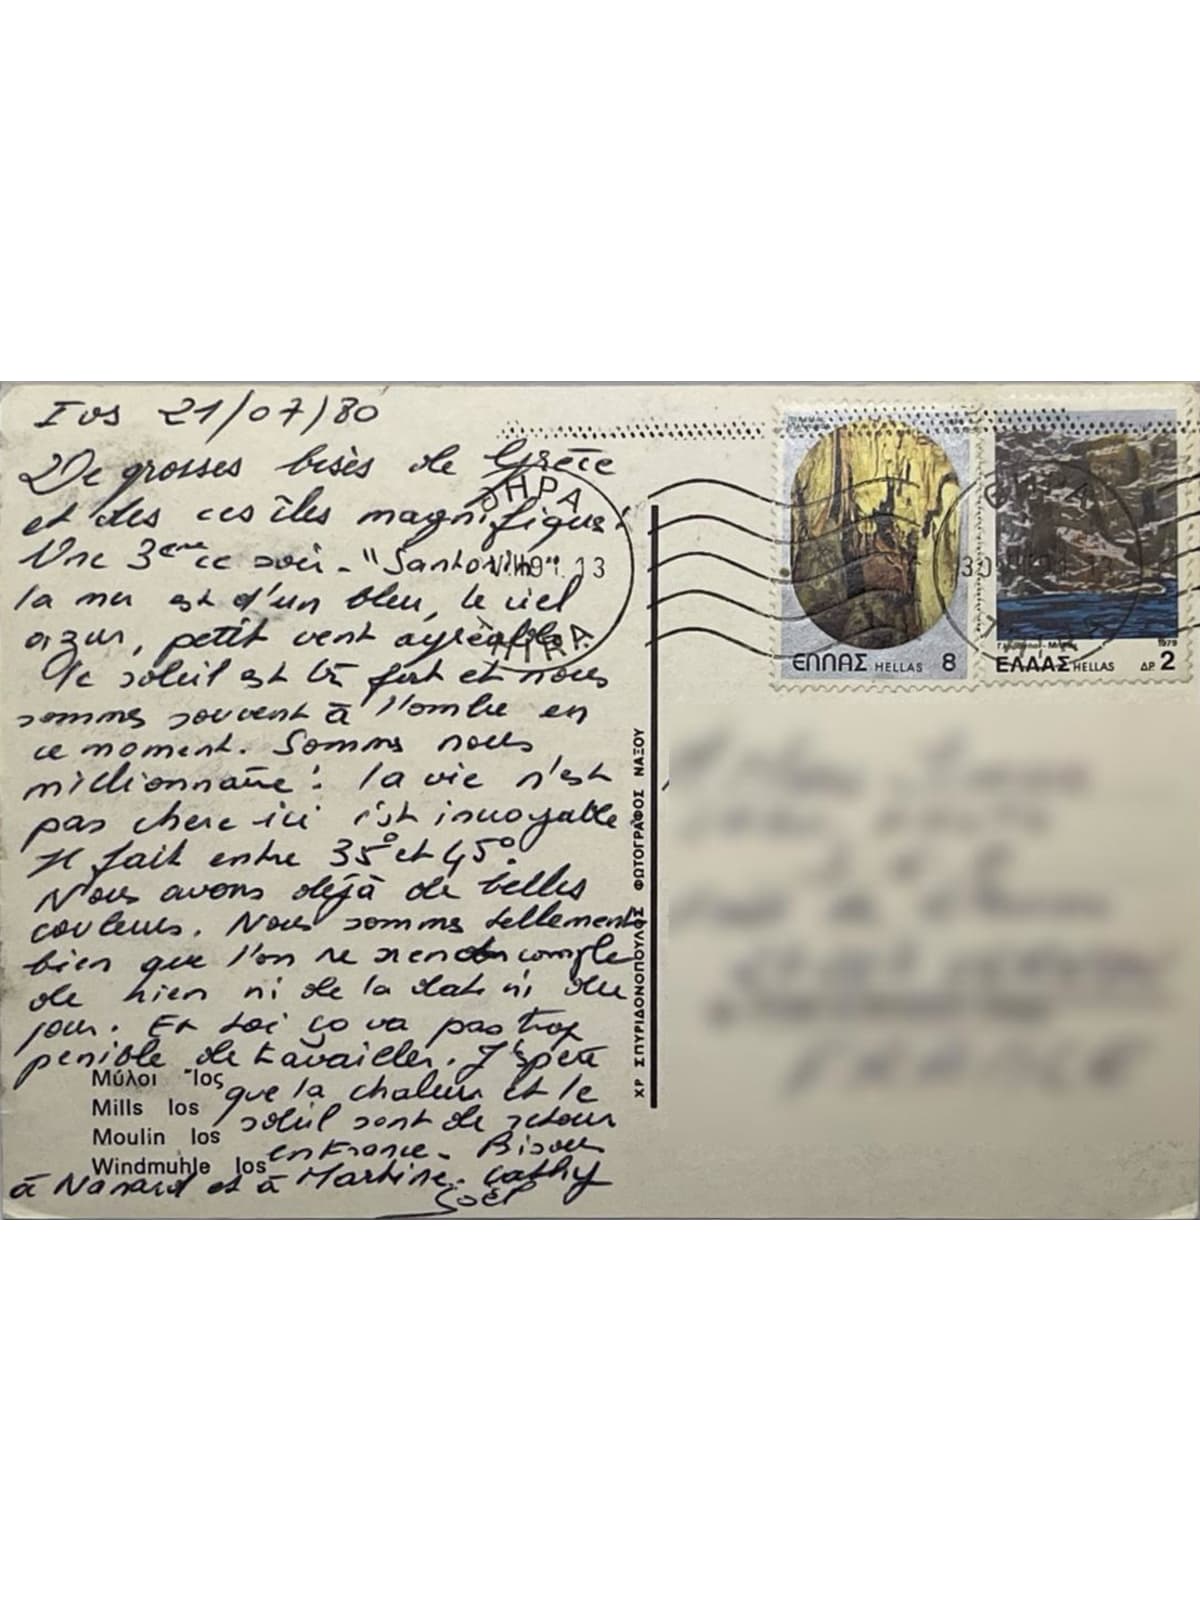 Ios 21/07/80
De grosses bises de Grèce
et des ces îles magnifiques!
Une 3ème ce soir - "Santorin".
la mer est d'un bleu, le ciel
azur, petit vent agréable
le soleil est très fort et nous
sommes souvent à l'ombre en
ce moment. Somms nous
millionnaire! la vie n'est
pas chere ici c'est incroyable
Il fait entre 35° et 45°.
Nous avons déjà de belles
couleurs. Nous somms tellement
bien que l'on ne rend compte
de rien ni de la date ni du
jour. Et toi ça va pas trop
penible de travailler. J'espère
que la chaleur et le
soleil sont de retour
en France. Bisous
à Nanard et à Martine. Cathy
Joël
Μύλοι Ίος
Mills Ios
Moulin Ios
Windmuhle Ios
ΧΡ ΣΠΥΡΙΔΟΝΟΠΟΥΛΟΣ ΦΩΤΟΓΡΑΦΟΣ ΝΑΞΟΥ
ΘΗΡΑ
13
THIRA
ΕΛΛΑΣ HELLAS 8
1979
ΕΛΛΑΣ HELLAS ΔΡ. 2